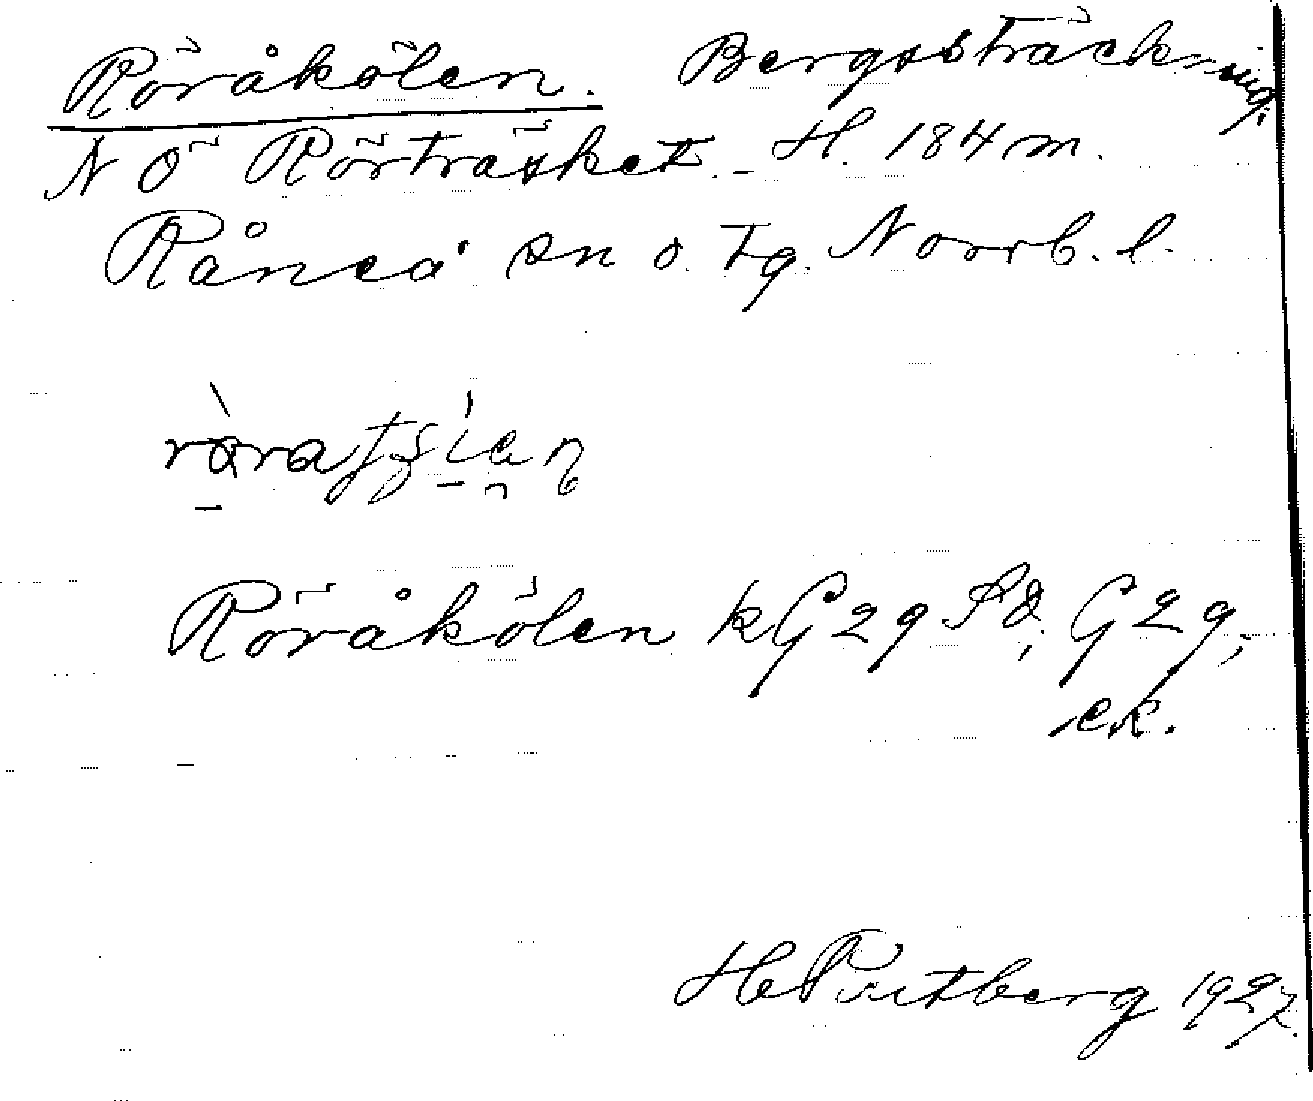 Röråkölen. Bergssträckning.
NÖ Rörträsket. H. 184 m.
Råneå sn o. tg. Norrb. l.
Röråkölen kG29 Sd; G29;
ek.
H Pertberg 1927.